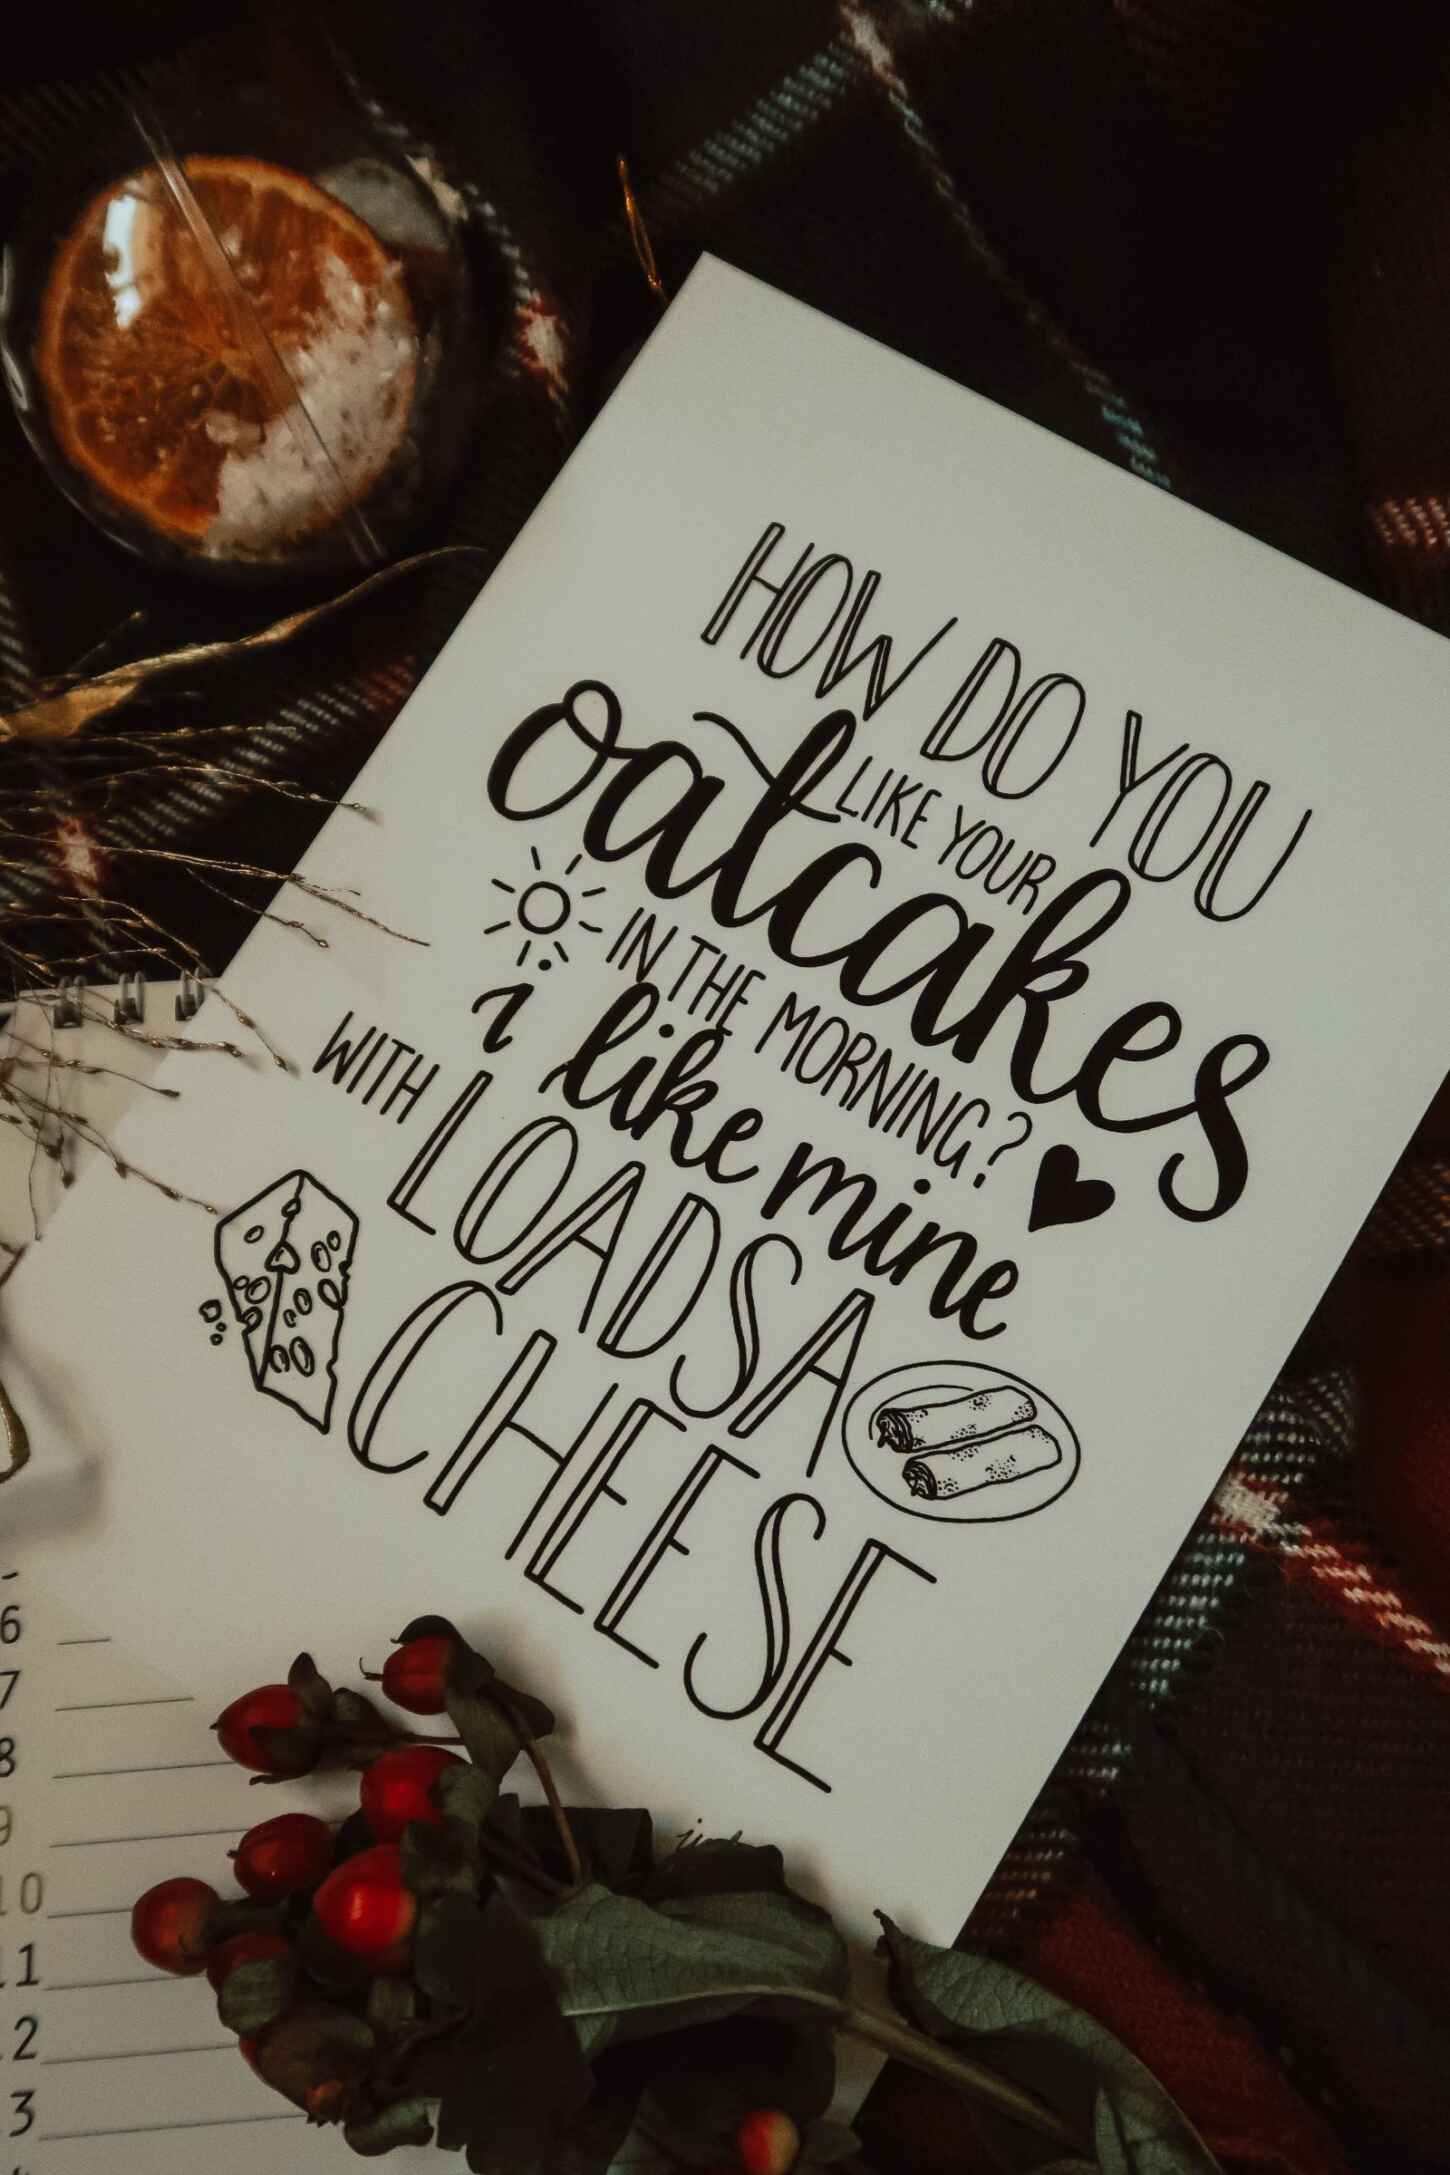 HOW DO YOU
LIKE YOUR
oatcakes
IN THE MORNING?
i like mine
WITH LOADSA
CHEESE
6
7
8
9
10
11